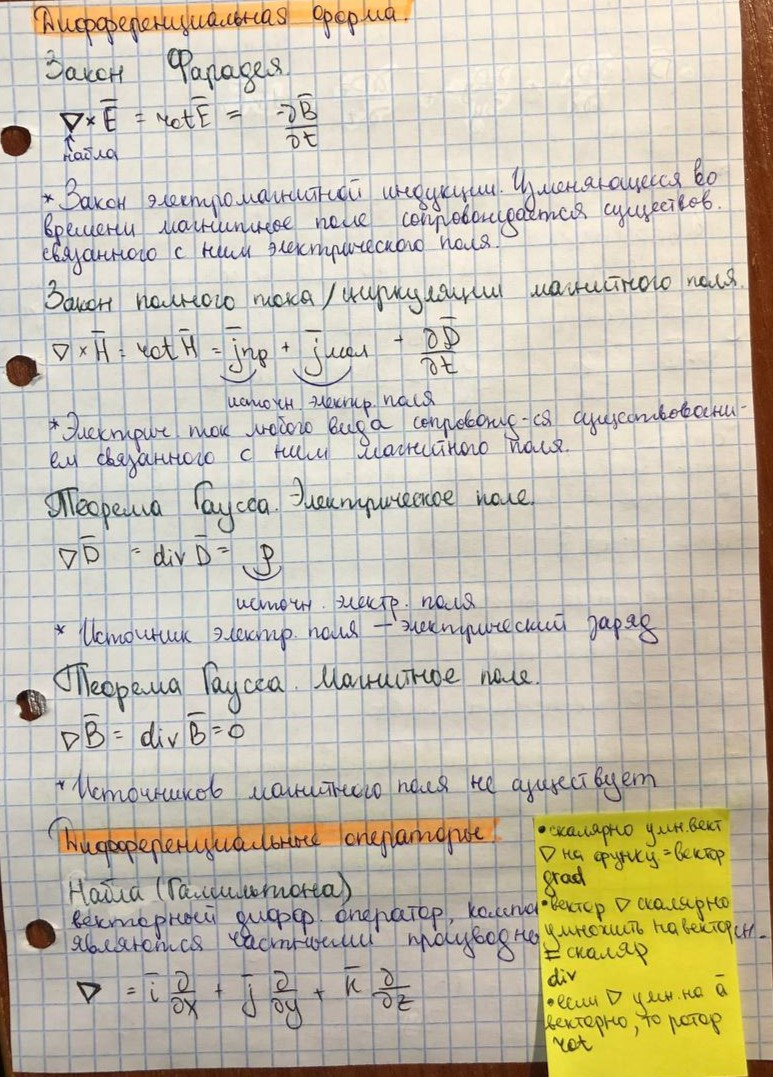 Дифференциальная форма.
Закон Фарадея.
∇×E̅ = rotE̅ = -∂B̅/∂t
набла
*Закон электромагнитной индукции. Изменяющееся во
времени магнитное поле сопровождается существов.
связанного с ним электрического поля.
Закон полного тока/циркуляции магнитного поля.
∇×H̅ = rotH̅ = j̅пр + j̅мол + ∂D̅/∂t
источн электр. поля
*Электрич ток любого вида сопровожд-ся существовани-
ем связанного с ним магнитного поля.
Теорема Гаусса. Электрическое поле.
∇D̅ = divD̅ = ρ
источн. электр. поля
* Источник электр. поля – электрический заряд
Теорема Гаусса. Магнитное поле.
∇B̅ = divB̅ = 0
*Источников магнитного поля не существует
Дифференциальные операторы.
Набла (Гамильтона)
векторный дифф. оператор, компо
являются частными производне
∇ = i̅ ∂/∂x + j̅ ∂/∂y + k̅ ∂/∂z
•скалярно умн.вект
∇ на функц=вектор
grad
•вектор ∇ скалярно
умножить на вектор
= скаляр
div
•если ∇ умн. на a̅
векторно, то ротор
rot